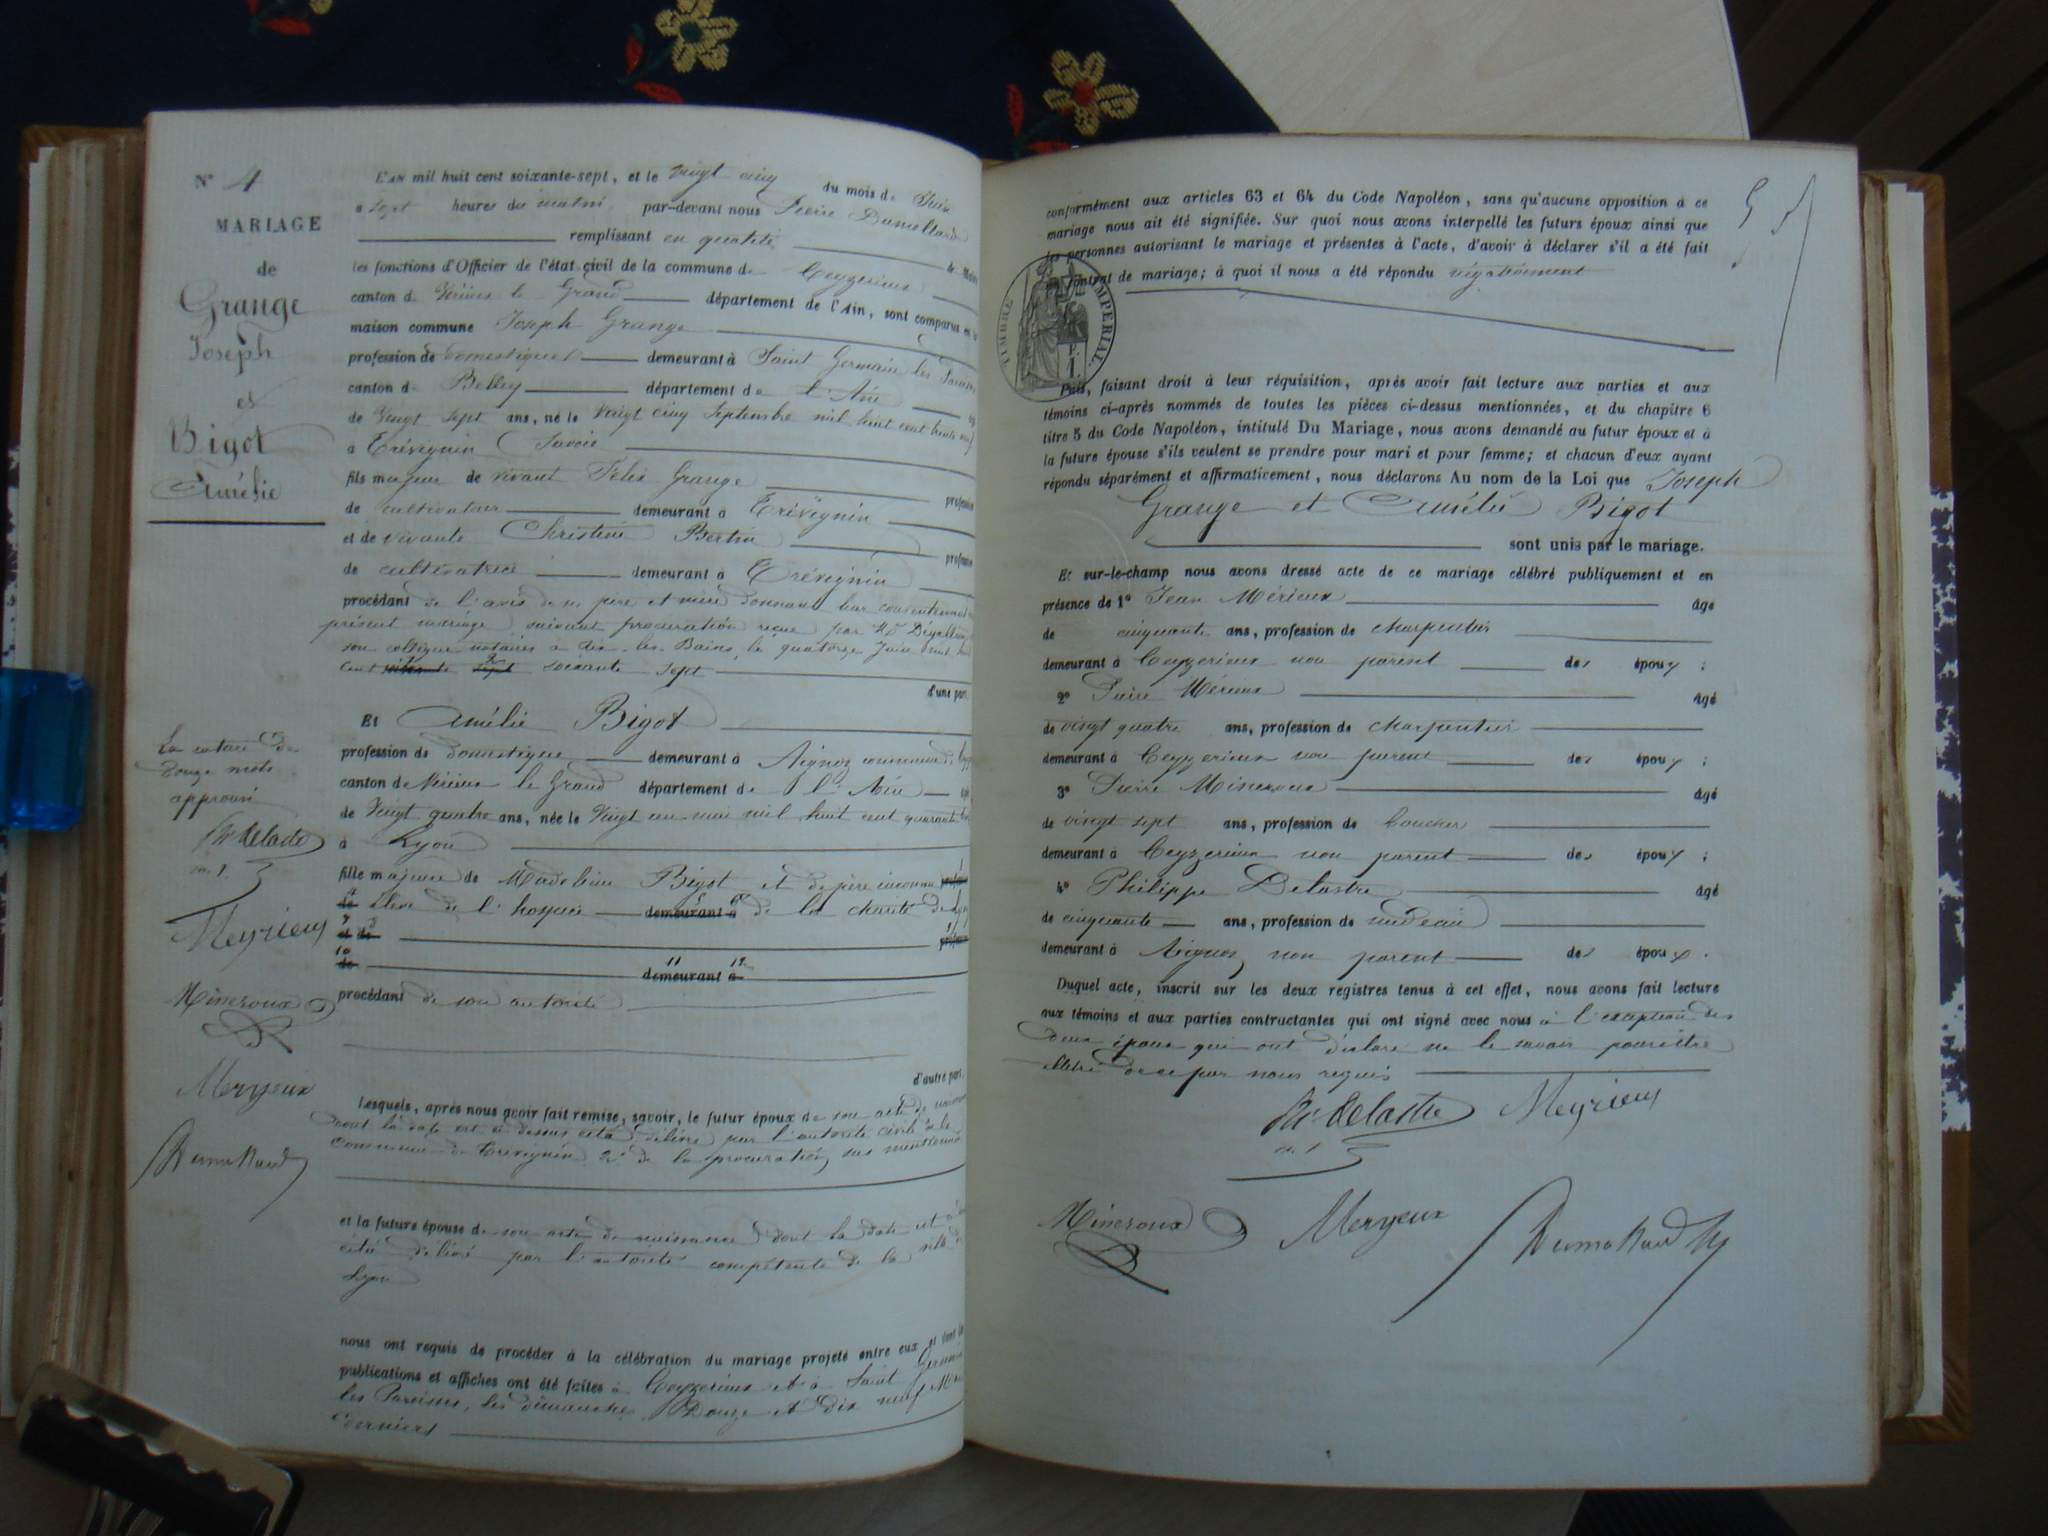 N° 4
MARIAGE
de
Grange
Joseph
et
Bigot
Amélie
L'AN mil huit cent soixante-sept, et le vingt cinq du mois de Juin
a sept heures du matin par-devant nous Pierre Dumollard
remplissant en qualité de Maire
les fonctions d'Officier de l'état civil de la commune de Ceyzerieu
canton de Virieu le Grand département de l'Ain, sont comparus en la
maison commune Joseph Grange
profession de domestique demeurant à Saint Germain les Paroisses
canton de Belley département de l'Ain
de vingt sept ans, né le vingt cinq Septembre mil huit cent trente neuf
à Trévignin Savoie
fils majeur de vivant Félix Grange profession
de cultivateur demeurant à Trévignin
et de vivante Christine Bertin profession
de cultivatrice demeurant à Trévignin
procédant de l'avis de ses père et mère donnant leur consentement au
présent mariage suivant procuration reçue par
son collègue notaires à Aix-les-Bains, le quatorze Juin mil huit
cent soixante sept
d'une part,
Et Amélie Bigot
profession de domestique demeurant à Aignoz commune de
canton de Virieu le Grand département de l'Ain
de vingt quatre ans, née le vingt un mai mil huit cent quarante
à Lyon
fille majeure de Madeleine Bigot et de père inconnu
de élève de l'hospice demeurant à de la charité de Lyon
et de
de demeurant à
procédant de son autorité
d'autre part.
Lesquels, après nous avoir fait remise, savoir, le futur époux de son acte de naissance
dont la date est ci dessus citée délivré par l'autorité civile de la
commune de Trévignin 2° de la procuration sus mentionnée
et la future épouse de son acte de naissance dont la date est
citée délivré par l'autorité compétente de la ville de
Lyon
nous ont requis de procéder à la célébration du mariage projeté entre eux et dont les
publications et affiches ont été faites à Ceyzerieu et à Saint Germain
les Paroisses, les dimanches Douze et dix neuf
derniers
La rature de
douze mots
approuvé
Ph Delastre
Meyrieux
Mineroux
Meryeux
Dumollard
conformément aux articles 63 et 64 du Code Napoléon, sans qu'aucune opposition à ce
mariage nous ait été signifiée. Sur quoi nous avons interpellé les futurs époux ainsi que
les personnes autorisant le mariage et présentes à l'acte, d'avoir à déclarer s'il a été fait
contrat de mariage; à quoi il nous a été répondu négativement
TIMBRE IMPERIAL
Puis, faisant droit à leur réquisition, après avoir fait lecture aux parties et aux
témoins ci-après nommés de toutes les pièces ci-dessus mentionnées, et du chapitre 6
titre 5 du Code Napoléon, intitulé Du Mariage, nous avons demandé au futur époux et à
la future épouse s'ils veulent se prendre pour mari et pour femme; et chacun d'eux ayant
répondu séparément et affirmativement, nous déclarons Au nom de la Loi que Joseph
Grange et Amélie Bigot
sont unis par le mariage.
Et sur-le-champ nous avons dressé acte de ce mariage célébré publiquement et en
présence de 1° Jean Mérieux âgé
de cinquante ans, profession de charpentier
demeurant à Ceyzerieu non parent des époux ;
2° Mérieux âgé
de vingt quatre ans, profession de charpentier
demeurant à Ceyzerieu non parent des époux ;
3° Pierre Mineroux âgé
de vingt sept ans, profession de boucher
demeurant à Ceyzerieu non parent des époux ;
4° Philippe Delastre âgé
de cinquante ans, profession de
demeurant à Aignoz non parent des époux.
Duquel acte, inscrit sur les deux registres tenus à cet effet, nous avons fait lecture
aux témoins et aux parties contractantes qui ont signé avec nous à l'exception des
deux époux qui ont déclaré ne le savoir pour être
illitré de ce par nous requis
Ph Delastre Meyrieux
Mineroux Meryeux Dumollard